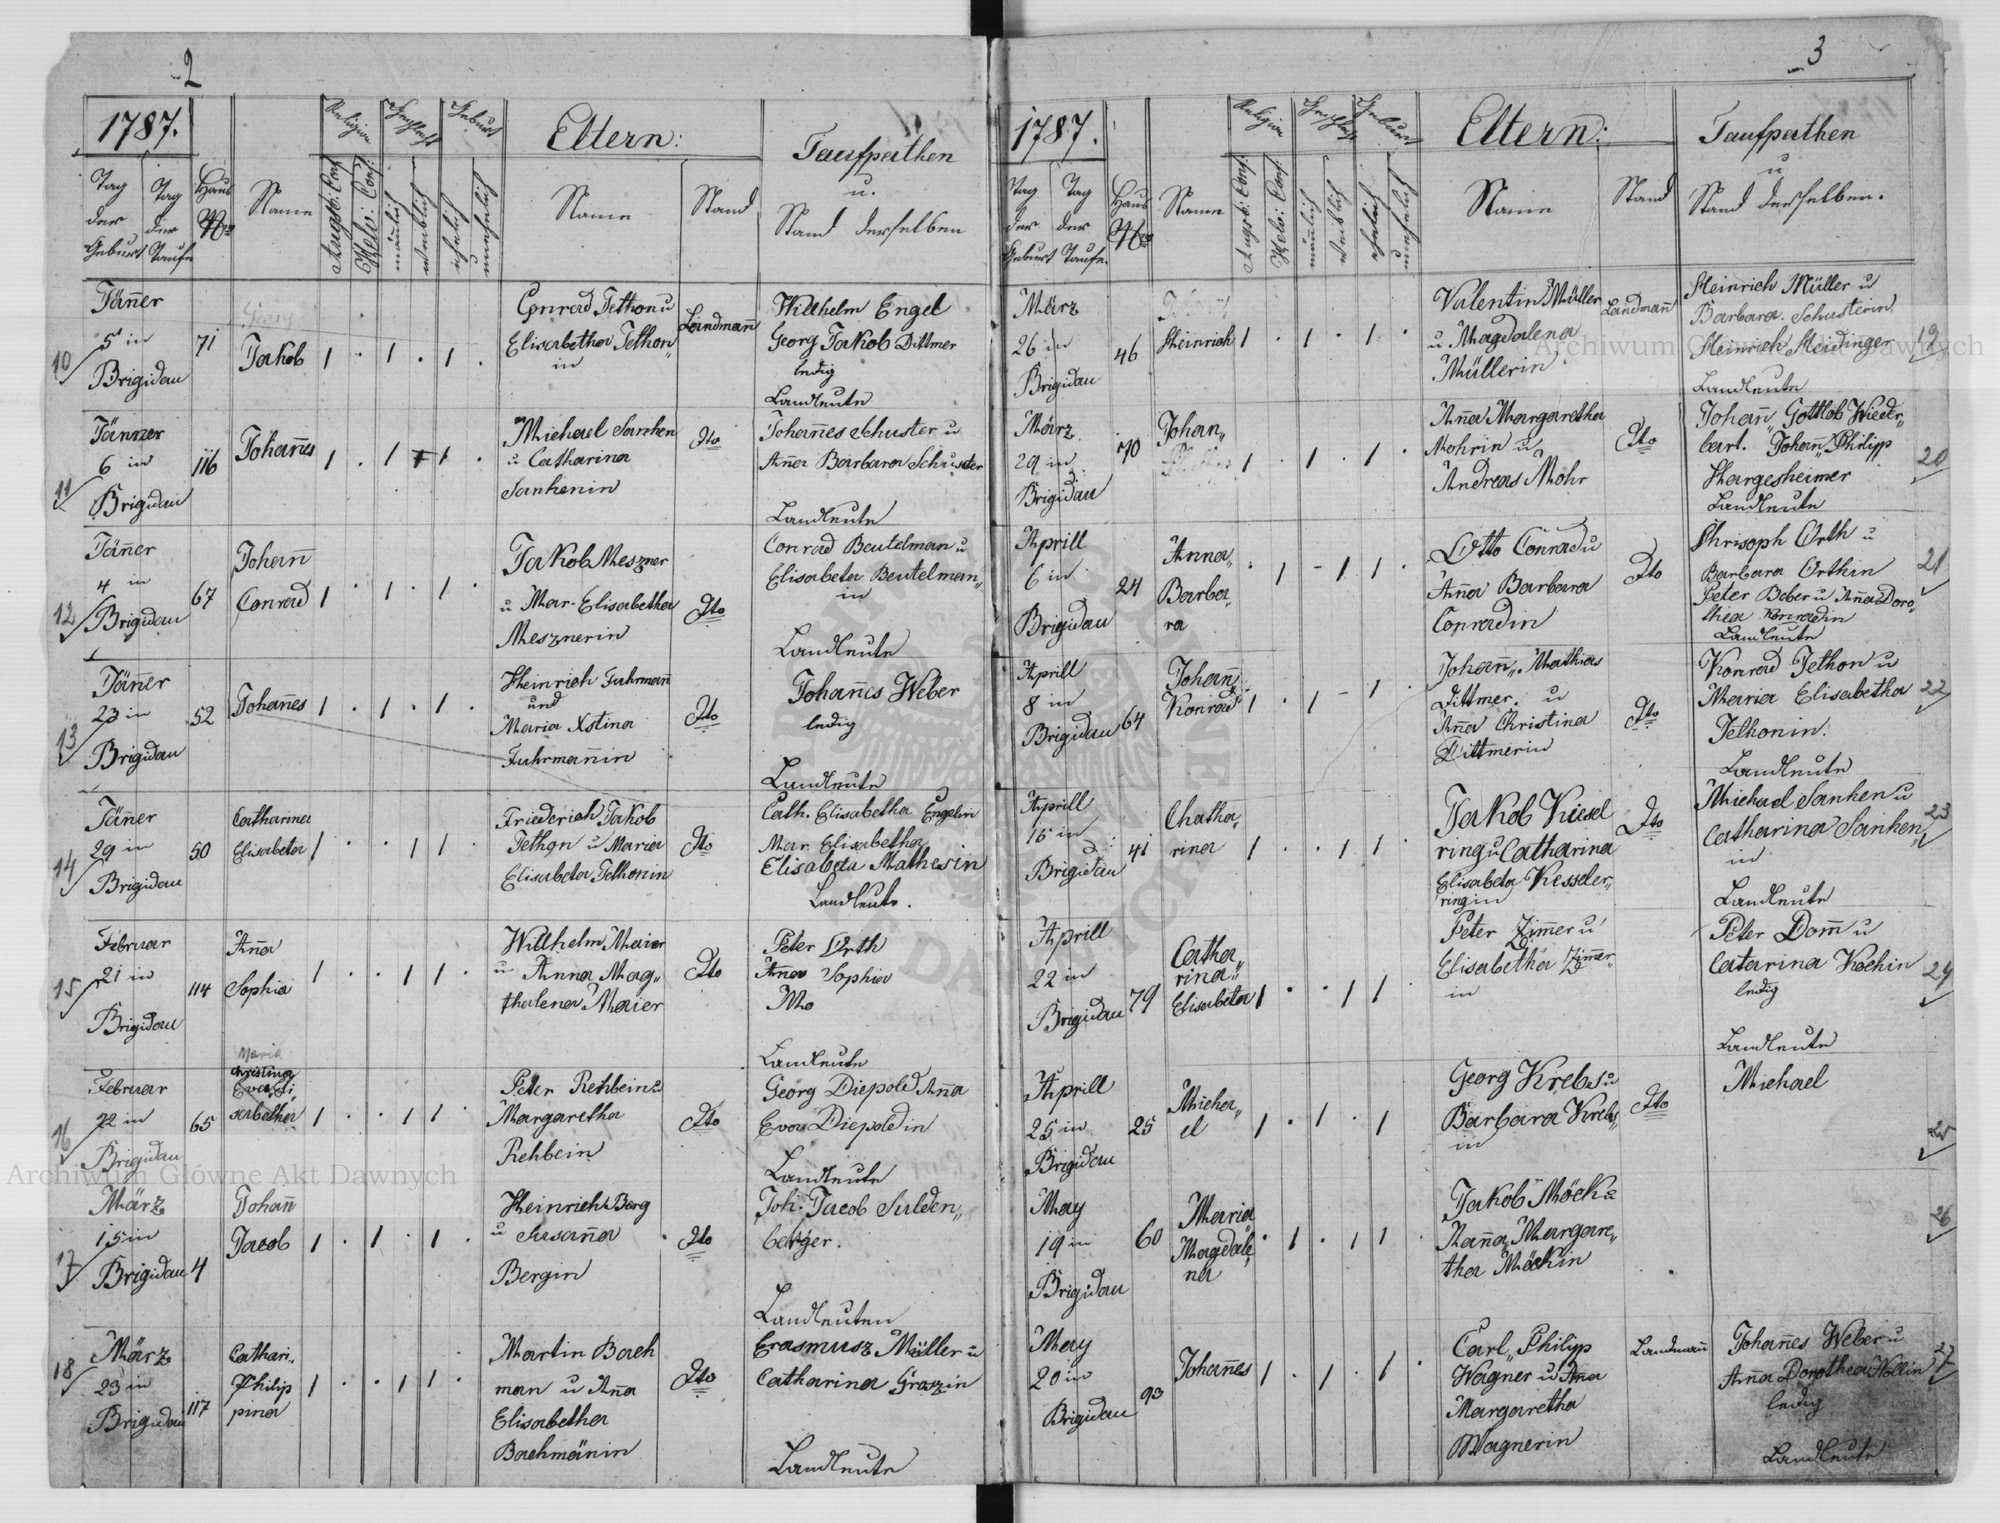 2
1787.
Religion
Geschlecht
Geburt
Eltern:
Taufpathen
u.
Stand derselben
Tag
der
Geburt
Tag
der
Taufe
Haus
Nro
Name
Augsb: Conf.
Helv: Conf:
mänlich
weiblich
ehelich
unehelich
Name
Stand
10
Jäner
5 in
Brigidau
71
Georg
Jakob
Conrad Jethon u
Elisabetha Jethon
in
Landmann
Wilhelm Engel
Georg Jakob Dittmer
ledig
Landleute
11
Jänner
6 in
Brigidau
116
Johannes
Michael Sanken
u Catharina
Sankenin
Dto
Johannes Schuster u
Anna Barbara Schuster
Landleute
12
Jäner
4 in
Brigidau
67
Johann
Conrad
Jakob Meszner
u Mar. Elisabetha
Mesznerin
Dto
Conrad Beutelman u
Elisabeta Beutelman„
in
Landleute
13
Jäner
23 in
Brigidau
52
Johanes
Heinrich Fuhrmann
und
Maria Xstina
Fuhrmannin
Dto
Johanes Weber
ledig
Landleute
14
Jäner
29 in
Brigidau
50
Catharina
Elisabeta
Friederich Jakob
Jethon u Maria
Elisabeta Jethonin
Dto
Cath. Elisabetha Engelin
Mar. Elisabetha
Elisabeta Mathesin
Landleute.
15
Februar
21 in
Brigidau
114
Ana
Sophia
Wilhelm Maier
u Anna Mag„
thalena Maier
Dto
Peter Orth
Anna Sophia
Landleute
16
Februar
22 in
Brigidau
65
Maria
Christina
Eva Eli
sabetha
Peter Rehbein u
Margaretha
Rehbein
Dto
Georg Diepold Ana
Eva Diepoldin
Landleute
17
März
15 in
Brigidau
4
Johann
Jacob
Heinrich Berg
u Susana
Bergin
Dto
Joh. Jacob Sulden„
berger.
Landleuten
18
März
23 in
Brigidau
117
Cathari„
Philip
pina
Martin Bach
man u Ana
Elisabetha
Bachmänin
Dto
Erasmusz Müller u
Catharina Graszin
Landleute
3
1787.
Religion
Geschlecht
Geburt
Eltern:
Taufpathen
u
Stand derselben.
Tag
der
Geburt
Tag
der
Taufe.
Haus
Nro
Name
Augsb: Conf.
Helv: Conf.
mänlich
weiblich
ehelich
unehelich
Name
Stand
März
26 in
Brigidau
46
Heinrich
Valentin Müller
u Magdalena
Müllerin
Landmann
Heinrich Müller u
Barbara Schusterin
Heinrich Heidinger
Landleute
19
März
29 in
Brigidau
70
Johan„
Anna Margaretha
Mohrin u
Andreas Mohr
Dto
Johann„ Gottlob Wieder„
Johan„ Philipp
Hargesheimer
Landleute
20
Aprill
6 in
Brigidau
24
Anna„
Barba„
ra
Otto Conrad u
Anna Barbara
Conradin
Dto
Chrisoph Orth u
Barbara Orthin
Peter Beber u Ana Doro„
thea Konradin
Landleute
21
Aprill
8 in
Brigidau
64
Johann
Konrad
Johann„ Mathias
Dittmer u
Anna Christina
Dittmerin
Dto
Konrad Jethon u
Maria Elisabetha
Jethonin.
Landleute
22
Aprill
15 in
Brigidau
41
Chatha„
rina
Jakob Kiesel
ring u Catharina
Elisabeta Kesseler„
ringin
Dto
Michael Sanken u
Catharina Sanken„
in
Landleute
23
Aprill
22 in
Brigidau
79
Catha„
rina„
Elisabeta
Peter Zimer u
Elisabetha Zimer„
in
Peter Dom u
Catarina Kochin
ledig
Landleute
24
Aprill
25 in
Brigidau
25
Micha„
el
Georg Krebs u
Barbara Krebs„
in
Dto
Michael
25
May
19 in
Brigidau
60
Maria
Magdale„
na
Jakob Möck u
Anna Margare„
tha Möckin
26
May
20 in
Brigidau
93
Johanes
Carl„ Philipp
Wagner u Ana
Margaretha
Wagnerin
Landmann
Johanes Weber u
Anna Dorothea Nollin
ledig
Landleute
27
Archiwum Główne Akt Dawnych
Archiwum Główne Akt Dawnych